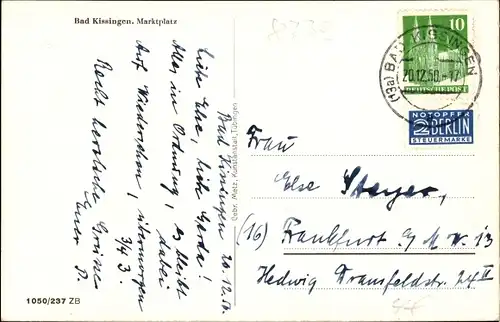 Bad Kissingen. Marktplatz
Bad Kissingen 20.12.50
Liebe Else, liebe Gerda!
Alles in Ordnung, es bleibt
dabei
Auf Wiedersehen, übermorgen
3/4 3.
Recht herzliche Grüße
Euer P.
Gebr. Metz, Kunstanstalt, Tübingen
1050/237 ZB
10
DEUTSCHE POST
(13a) BAD KISSINGEN
20.12.50.-17
NOTOPFER
2 BERLIN
STEUERMARKE
Frau
Else
(16) Frankfurt a/M W 13
Hedwig 24 II